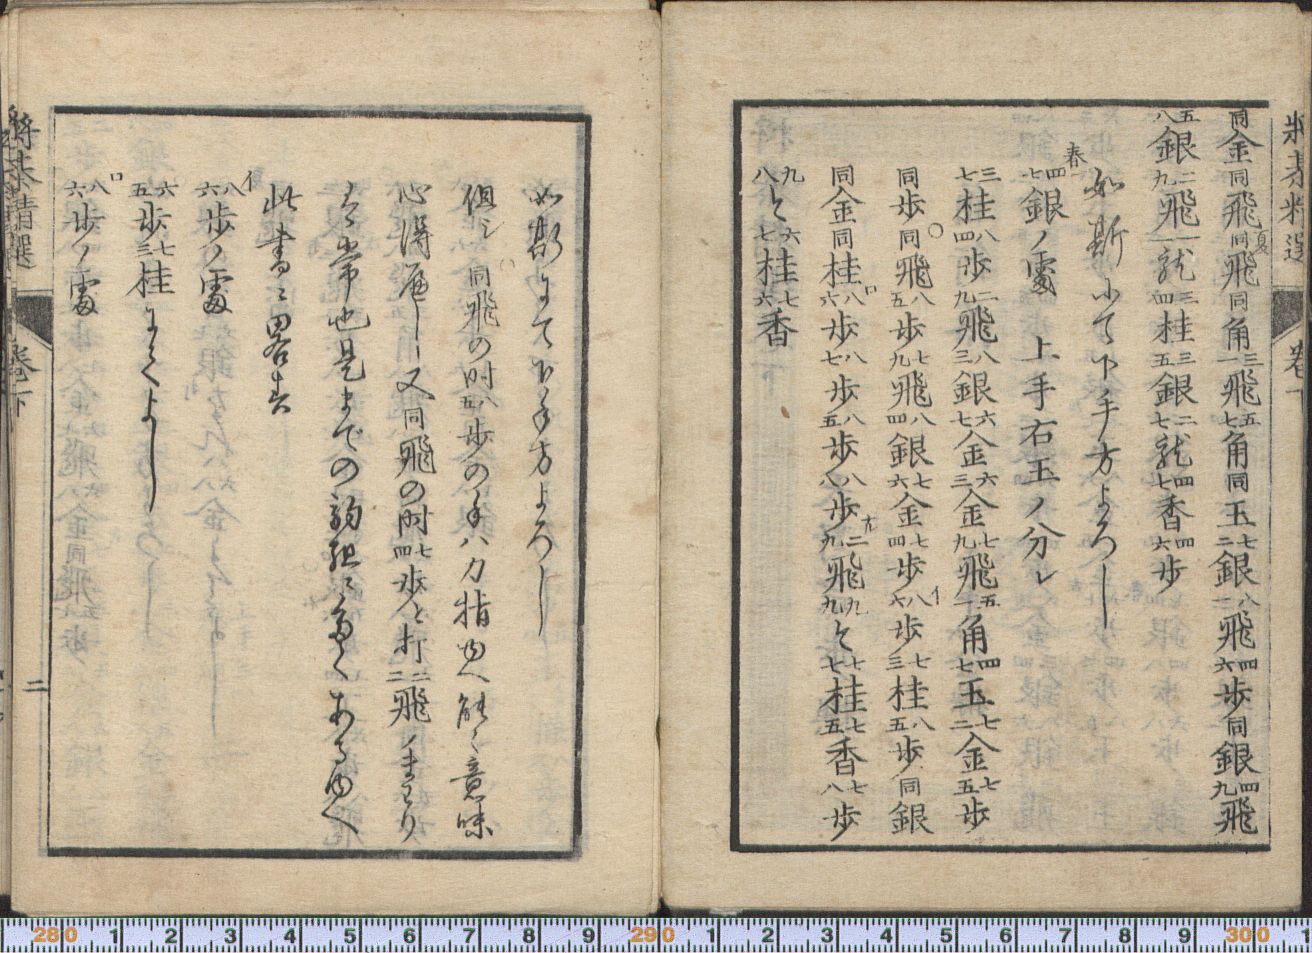 將棊精選 卷下
同金同飛夏同飛同角三一飛五七角同玉七二銀八二飛四六歩同銀四九飛
五八銀二九飛一龍三四桂三五銀二七龍四七香四六歩
如斯にて下手方よろし
春四七銀ノ處上手右玉ノ分レ
三七桂八四歩二九飛八三銀六七金六三金七九飛五一角四七玉七二金七五歩
同歩同飛八五歩七九飛八四銀七六金七四歩イ八六歩七三桂八五歩同銀
同金同桂ロ八六歩八七歩八五歩八八歩二九飛九九と七七桂七五香七八歩
九八と六七桂七六香
如斯にて下手方よろし
但シ同飛の時八五歩の手ハ力指ゆへ能々意味
心得へし又同飛の時七四歩と打二二飛ノまはり
常也是までの駒組に多くあるゆへ
此書に畧す
イ八六歩ノ處
六五歩七三桂にてよし
ロ八六歩ノ處
將棊精選 卷下 二